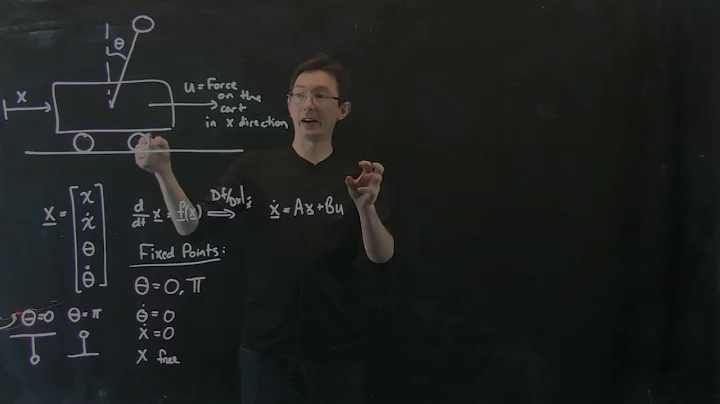 θ
x
u = Force
on the
cart
in x direction
x = [x ẋ θ θ̇]
d/dt x = f(x) ⟹ Df/Dx|x̄ ẋ = Ax + Bu
Fixed Points:
θ = 0, π
θ̇ = 0
ẋ = 0
x free
θ=0 θ=π